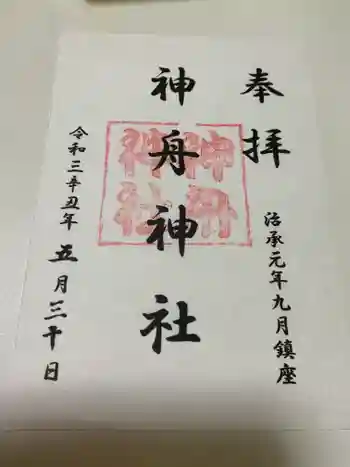 奉拝
治承元年九月鎮座
神舟神社
令和三辛丑年五月三十日
神舟神社